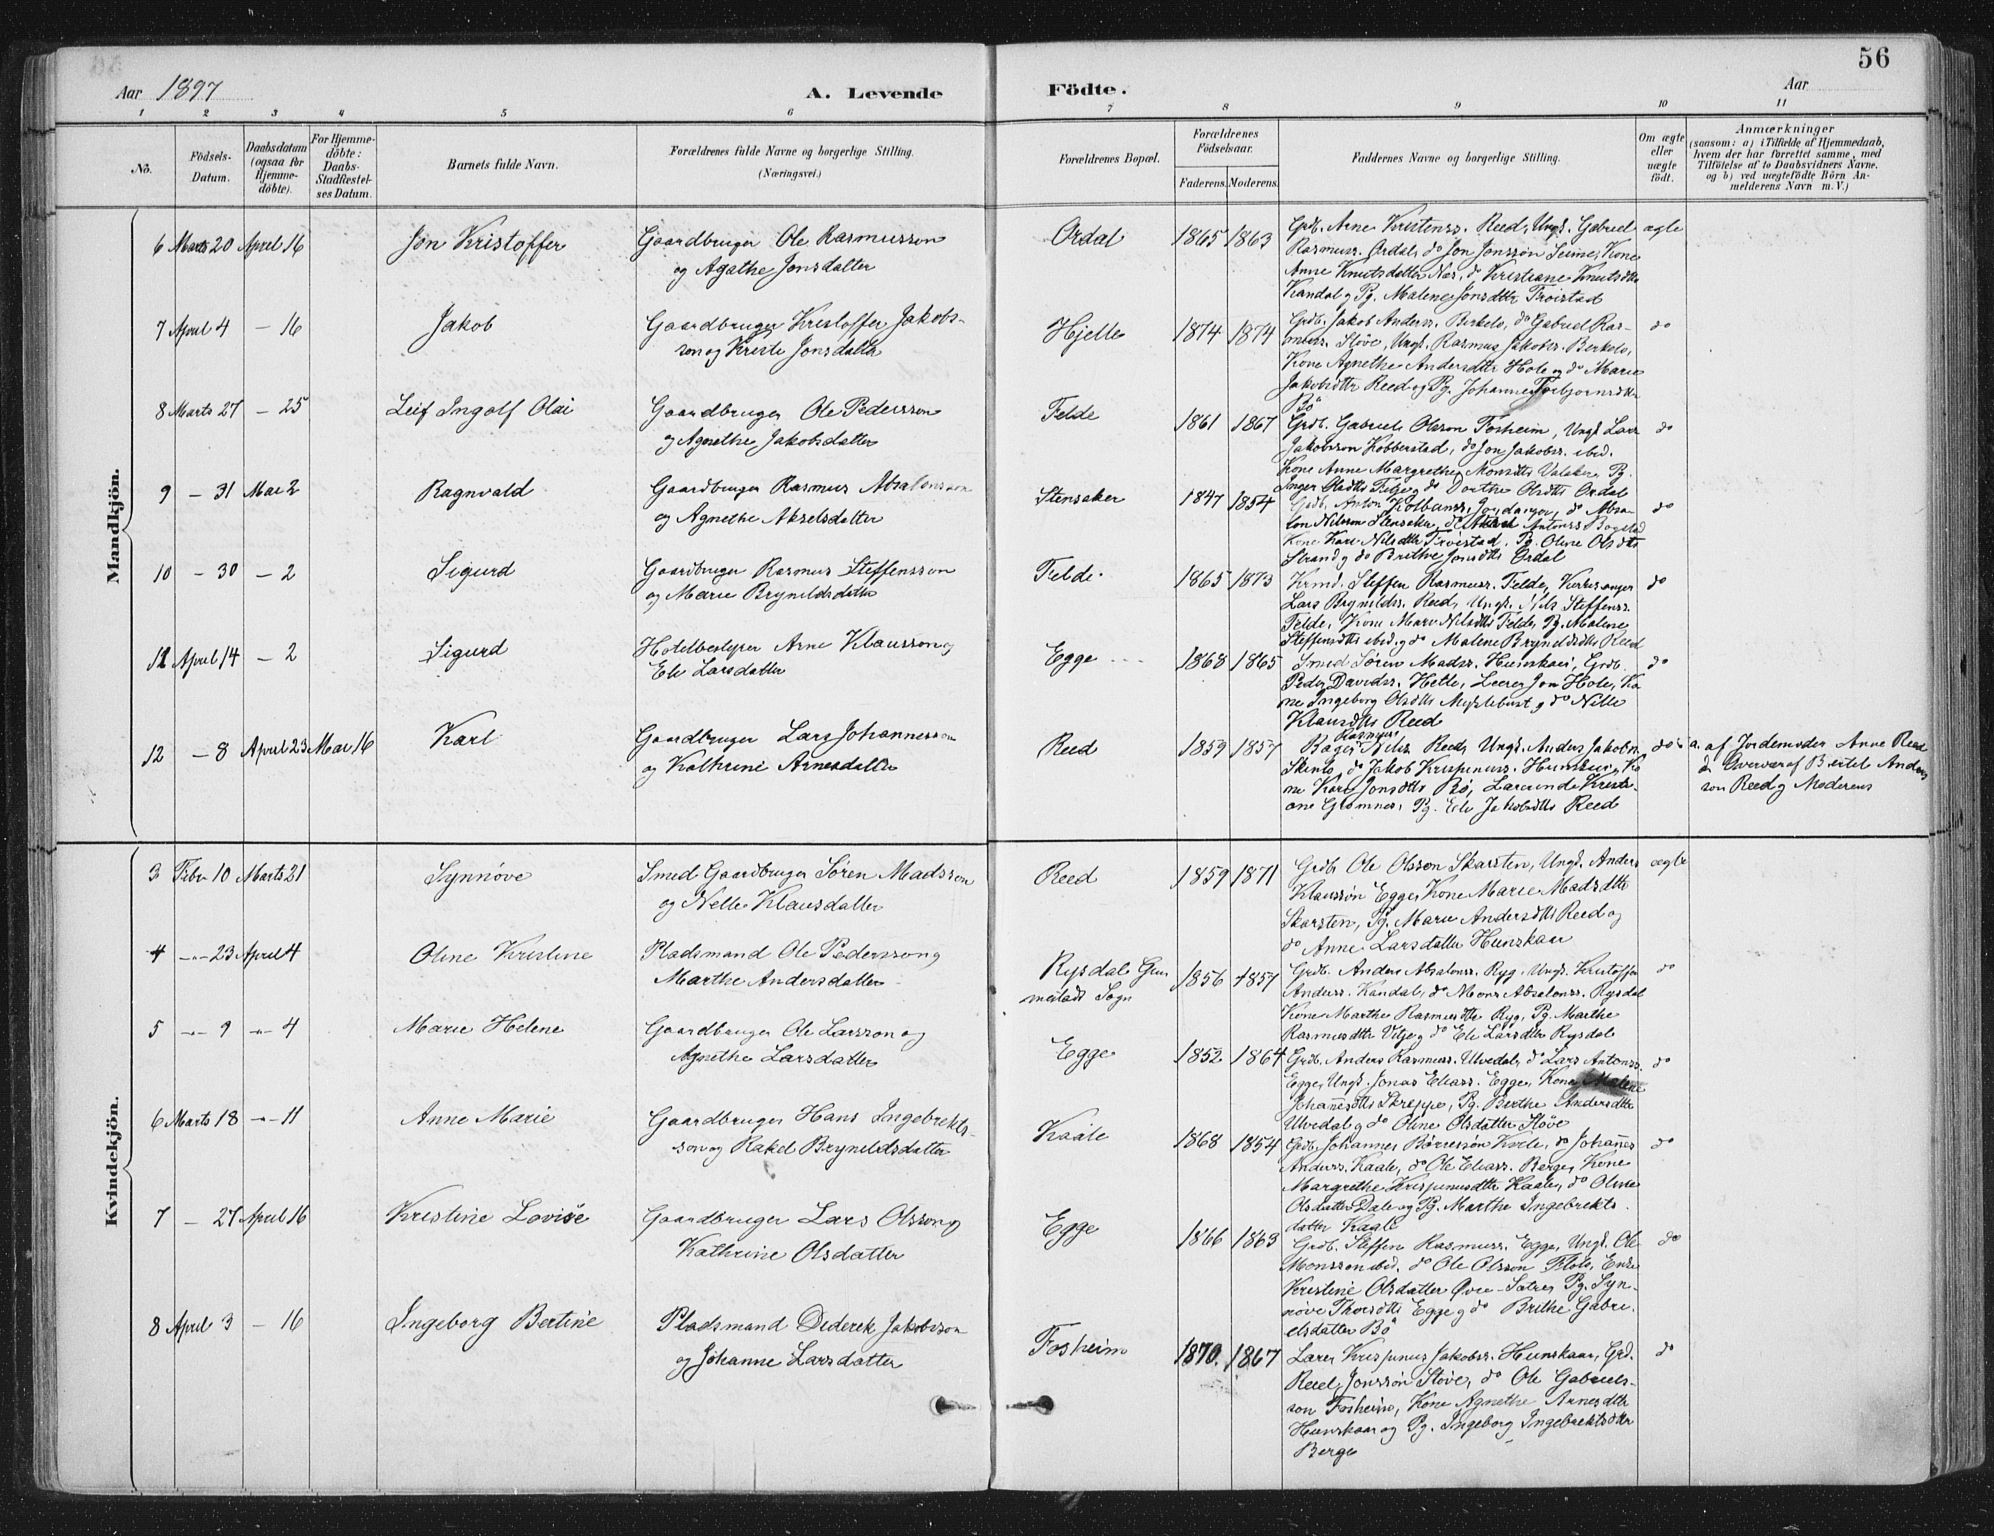 56
Aar 1897
A. Levende
Födte.
Aar
1 2 3 4 5 6 7 8 9 10 11
No.
Födsels-Datum.
Daabsdatum (ogsaa for Hjemmedöbte).
For Hjemmedöbte: Daabs-Stadfæstelses Datum.
Barnets fulde Navn.
Forældrenes fulde Navne og borgerlige Stilling.
(Næringsvei.)
Forældrenes Bopæl.
Forældrenes Födselsaar.
Faderens. Moderens.
Faddernes Navne og borgerlige Stilling.
Om ægte eller uægte födt.
Anmærkninger
(saasom: a) i Tilfælde af Hjemmedaab, hvem der har forrettet samme, med Tilföielse af to Daabsvidners Navne. og b) ved uægtefödte Börn Anmelderens Navn m. V.)
Mandkjön.
6 Marts 20 April 16 Jon Kristoffer Gaardbruger Ole Rasmusson
og Agathe Jonsdatter
Ordal 1865 1863 Grdb. Arne Kristenss. Reed, Ungk. Gabriel ægte
Rasmuss. Ordal, do Jon Jonssøn Seime, Kone
Anne Knutsdatter Nes, do Kristiane Knutsdtr
Kandal og Pg. Malene Jonsdttr Troistad
7 April 4 – 16 Jakob Gaardbruger Kristoffer Jakobs-
son og Kriste Jonsdatter
Hjelle 1874 1874 Grdb. Jakob Anderss. Berkelo, do Gabriel Ras- do
muss. Støve, Ungk. Rasmus Jakobss. Berkelo,
Kone Agnethe Andersdttr Hole og do Marie
Jakobsdttr Reed og Pg. Johanne Torbjornsdttr
Bö
8 Marts 27 – 25 Leif Ingolf Olai Gaardbruger Ole Pedersson
og Agnethe Jakobsdatter
Felde 1861 1867 Grdb. Gabriel Olsson Fosheim, Ungk. Lars do
Jakobsson Kobberstad, do Jon Jakobss. ibid.
Kone Anne Margrethe Monsdttr, Pg.
Inger Olsdttr Felde og do Dorthe Olsdttr Ordal
9 – 31 Mai 2 Ragnvald Gaardbruger Rasmus Absalonsson
og Agnethe Akselsdatter
Stensaker 1847 1854 Grdb. Anton, do Absa- do
lon Nilsson Stensaker, do Antonss Bogstad
Kone Kari Nilsdttr Troistad, Pg. Oline Olsdttr
Strand og do Brithe Jonsdttr Ordal
10 – 30 – 2 Sigurd Gaardbruger Rasmus Steffensson
og Marie Brynildsdatter
Felde 1865 1873 Krmd. Steffen Rasmuss. Felde, Kirkesanger do
Lars Brynildss. Reed, Ungk. Nils Steffenss.
Felde, Kone Mari Nilsdttr Felde, Pg. Malene
Steffensdttr ibid. og do Malene Brynildsdttr Reed
11 April 14 – 2 Sigurd Hotelbestyrer Arne Klausson og
Eli Larsdatter
Egge 1868 1865 Smed Søren Madss. Hunskaar, Grdb. do
Peder Davidss. Hetle, Lærer Jon Hole, Ko-
ne Ingeborg Olsdttr Myklebust og do Nille
Klausdttr Reed
12 – 8 April 23 Mai 16 Karl Gaardbruger Lars Johannesson
og Kathrine Arnesdatter
Reed 1859 1857 Bager Rasmus Nilss Reed, Ungk. Anders Jakobss. do a. af Jordemoder Anne Reed
do Jakob Krispinuss. Hunskaar, Ko- i Overvær af Bertel Anders
ne Kari Jonsdttr Bö, Lærerinde Kristi- son Reed og Moderen
ane Gromnes, Pg. Eli Jakobsdttr Reed
Kvindekjön.
3 Febr 10 Marts 21 Synnöve Smed Gaardbruger Sören Madsson
og Nelle Klausdatter
Reed 1859 1871 Grdb Ole Olsson Skarsten, Ungk. Anders ægte
Klaussön Egge, Kone Marie Madsdttr
Skarsten, Pg. Mari Andersdttr Reed og
do Anne Larsdatter Hunskaar
4 – 23 April 4 Oline Kristine Pladsmand Ole Pedersson og
Marthe Andersdatter
Rysdal Gim
mestads Sogn
1856 1857 Grdb. Anders Absalonss. Ryg, Ungk. Kristoffer do
Anderss. Kandal, do Mons Absalonss. Rysdal
Kone Marthe Rasmusdttr Ryg, Pg. Marthe
Rasmusdttr og do Eli Larsdttr Rysdal
5 – 9 – 4 Marie Helene Gaardbruger Ole Larsson og
Agnethe Larsdatter
Egge 1852 1864 Grdb. Anders Rasmuss. Utvedal, do Lars Antonss. do
Egge, Ungk. Jonas Eliass. Egge, Kone Malene
Johañesdttr Skreppe, Pg. Berthe Andersdttr
Utvedal og do Oline Olsdatter Støve
6 Marts 18 – 11 Anne Marie Gaardbruger Hans Ingebrekts-
son og Rakel Brynildsdatter
Kaale 1868 1854 Grdb. Johannes Børresson, do Johañes do
Anderss. Kaale, do Ole Eliass. Berge, Kone
Margrethe Krispinusdttr Kaale, do Oline
Olsdatter Dale og Pg. Marthe Ingebrekts
datter Kaale
7 – 27 April 16 Kristine Lovise Gaardbruger Lars Olsson og
Kathrine Olsdatter
Egge 1866 1863 Grdb. Steffen Rasmuss. Egge, Ungk. Ole do
Monsson ibid. do Ole Olsson Flote, Enke
Kristine Olsdatter Øvre-Sætre, Pg. Syn-
növe Thorsdttr Egge og do Brithe Gabri-
elsdatter Bö
8 April 3 – 16 Ingeborg Bertine Pladsmand Diderik Jakobsson
og Johanne Larsdatter
Fosheim 1870. 1867 Lærer Krispinus Jakobss. Hunskaar, Grd. do
Reiel Jonssön Støve, do Ole Gabriels-
son Fosheim, Kone Agnethe Arnesdttr
Hunskaar og Pg. Ingeborg Ingebrektsdttr
Berge